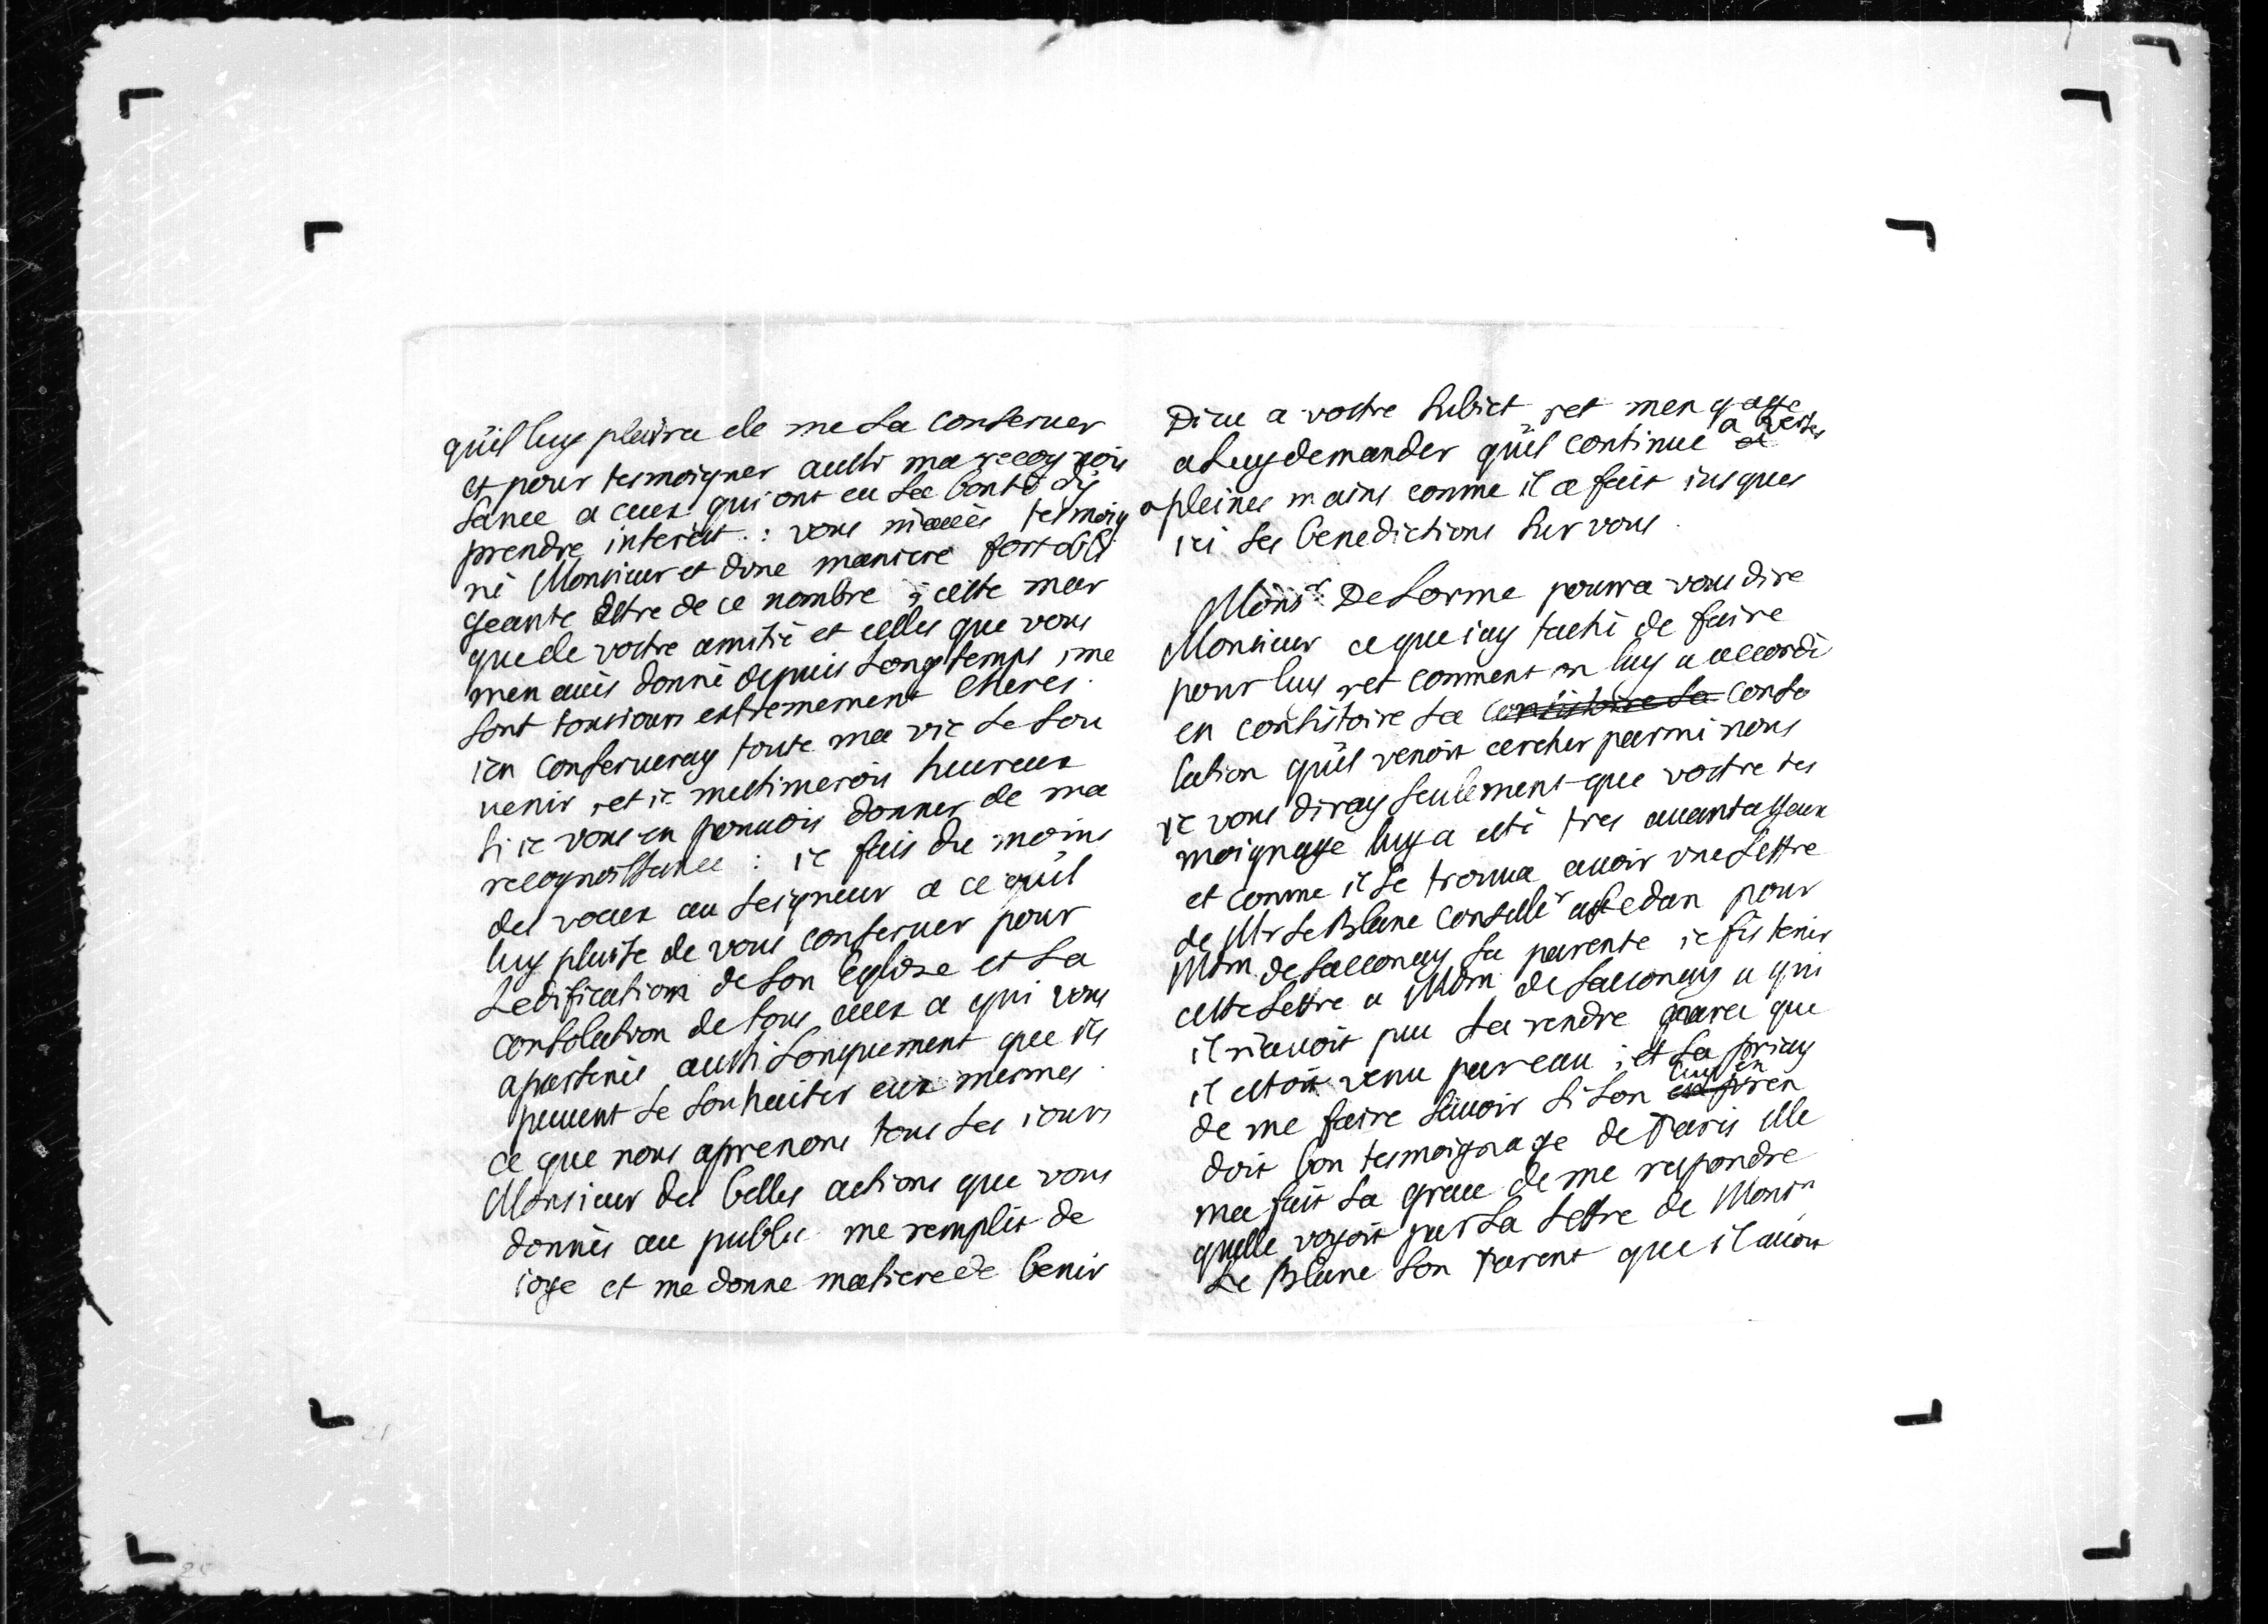 qu'il luy plaira de me la conseruer
et pour tesmoigner aussi ma recognois
sance a ceux qui ont eu la bonté dy
prendre interest : vous m'aués tesmoig
né Monsieur et dune maniere fort obli
geante destre de ce nombre ; ceste mar
que de vostre amitié et celles que vous
men aués donné depuis longtemps , me
sont tousiours extremement cheres .
ien conserueray toute ma vie le sou
uenir , et ie mestimerois heureux
si ie vous en pouuois donner de ma
recognoissance : ie fais du moins
des voeux au seigneur a ce qu'il
luy plaise de vous conseruer pour
ledification de son Eglise et la
consolation de tous ceux a qui vous
apartenés aussi longuement que ils
peuuent le souhaiter eux mesmes .
ce que nous aprenons tous les iours
Monsieur des belles actions que vous
donnés au public me remplit de
ioye et me donne matiere de benir
Dieu a vostre subiet , et mengage
a luy demander qu'il continue a verser
a pleines mains comme il a fait iusques
ici ses benedictions sur vous .
Monsr. De Lorme pourra vous dire
Monsieur ce que iay taché de faire
pour luy , et comment on luy a accordé
en consistoire la consistoire la conso
lation qu'il venoit cercher parmi nous
ie vous diray seulement que vostre tes
moignage luy a esté tres auantageux
et comme il se trouua auoir vne lettre
de Mr Le Blanc conseillr a Sedan pour
Mdm. de Sacconay sa parente ie fis tenir
ceste lettre a Mdm de Sacconay a qui
il n'auoit peu la rendre parce que
il estoit venu par eau ; et la priay
de me faire sauoir si lon luy en ren
doit bon tesmoignage de Paris elle
ma fait la grace de me respondre
quelle voyoit par la lettre de Monsr
Le Blanc son Parent que il auoit